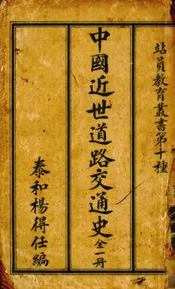 站員教育叢書第十種
中國近世道路交通史 全一冊
泰和楊得任編